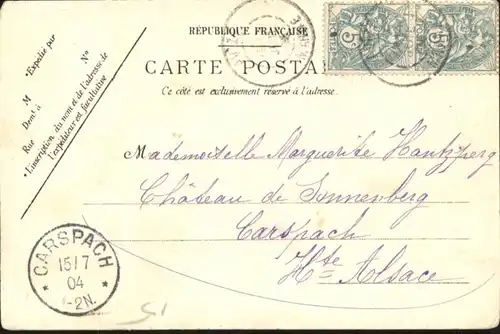 RÉPUBLIQUE FRANÇAISE
CARTE POSTA
Ce côté est exclusivement réservé à l'adresse.
*Expédié par
M N°
Dem^t à
Rue
*L'inscription du nom et de l'adresse de
l'expéditeur est facultative
5
5
Mademoiselle Marguerite Hantzperg
Château de Sonnenberg
Carspach
Hte Alsace
CARSPACH
15/7
04
1-2N.
* *